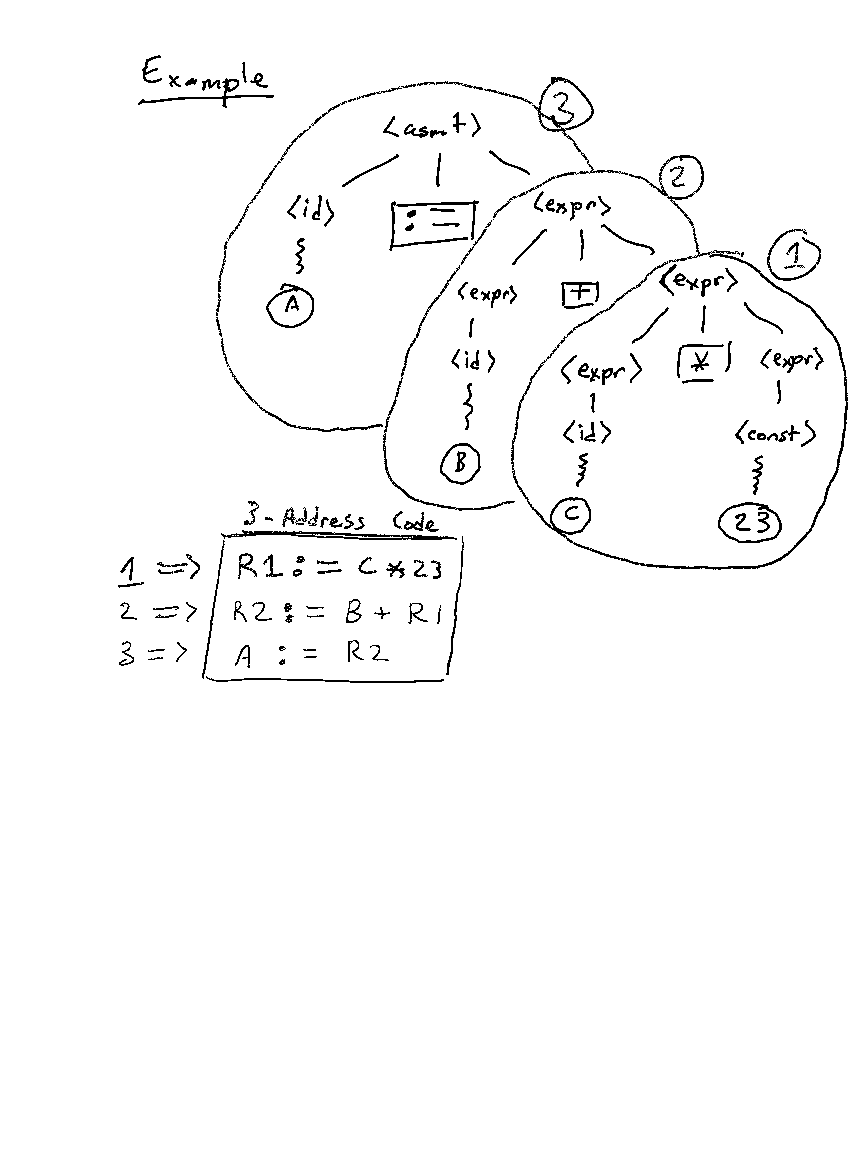 Example
3
<asmt>
2
<id> := <expr>
1
A <expr> + <expr>
<id> <expr> * <expr>
B <id> <const>
C 23
3-Address Code
1 => R1 := C * 23
2 => R2 := B + R1
3 => A := R2